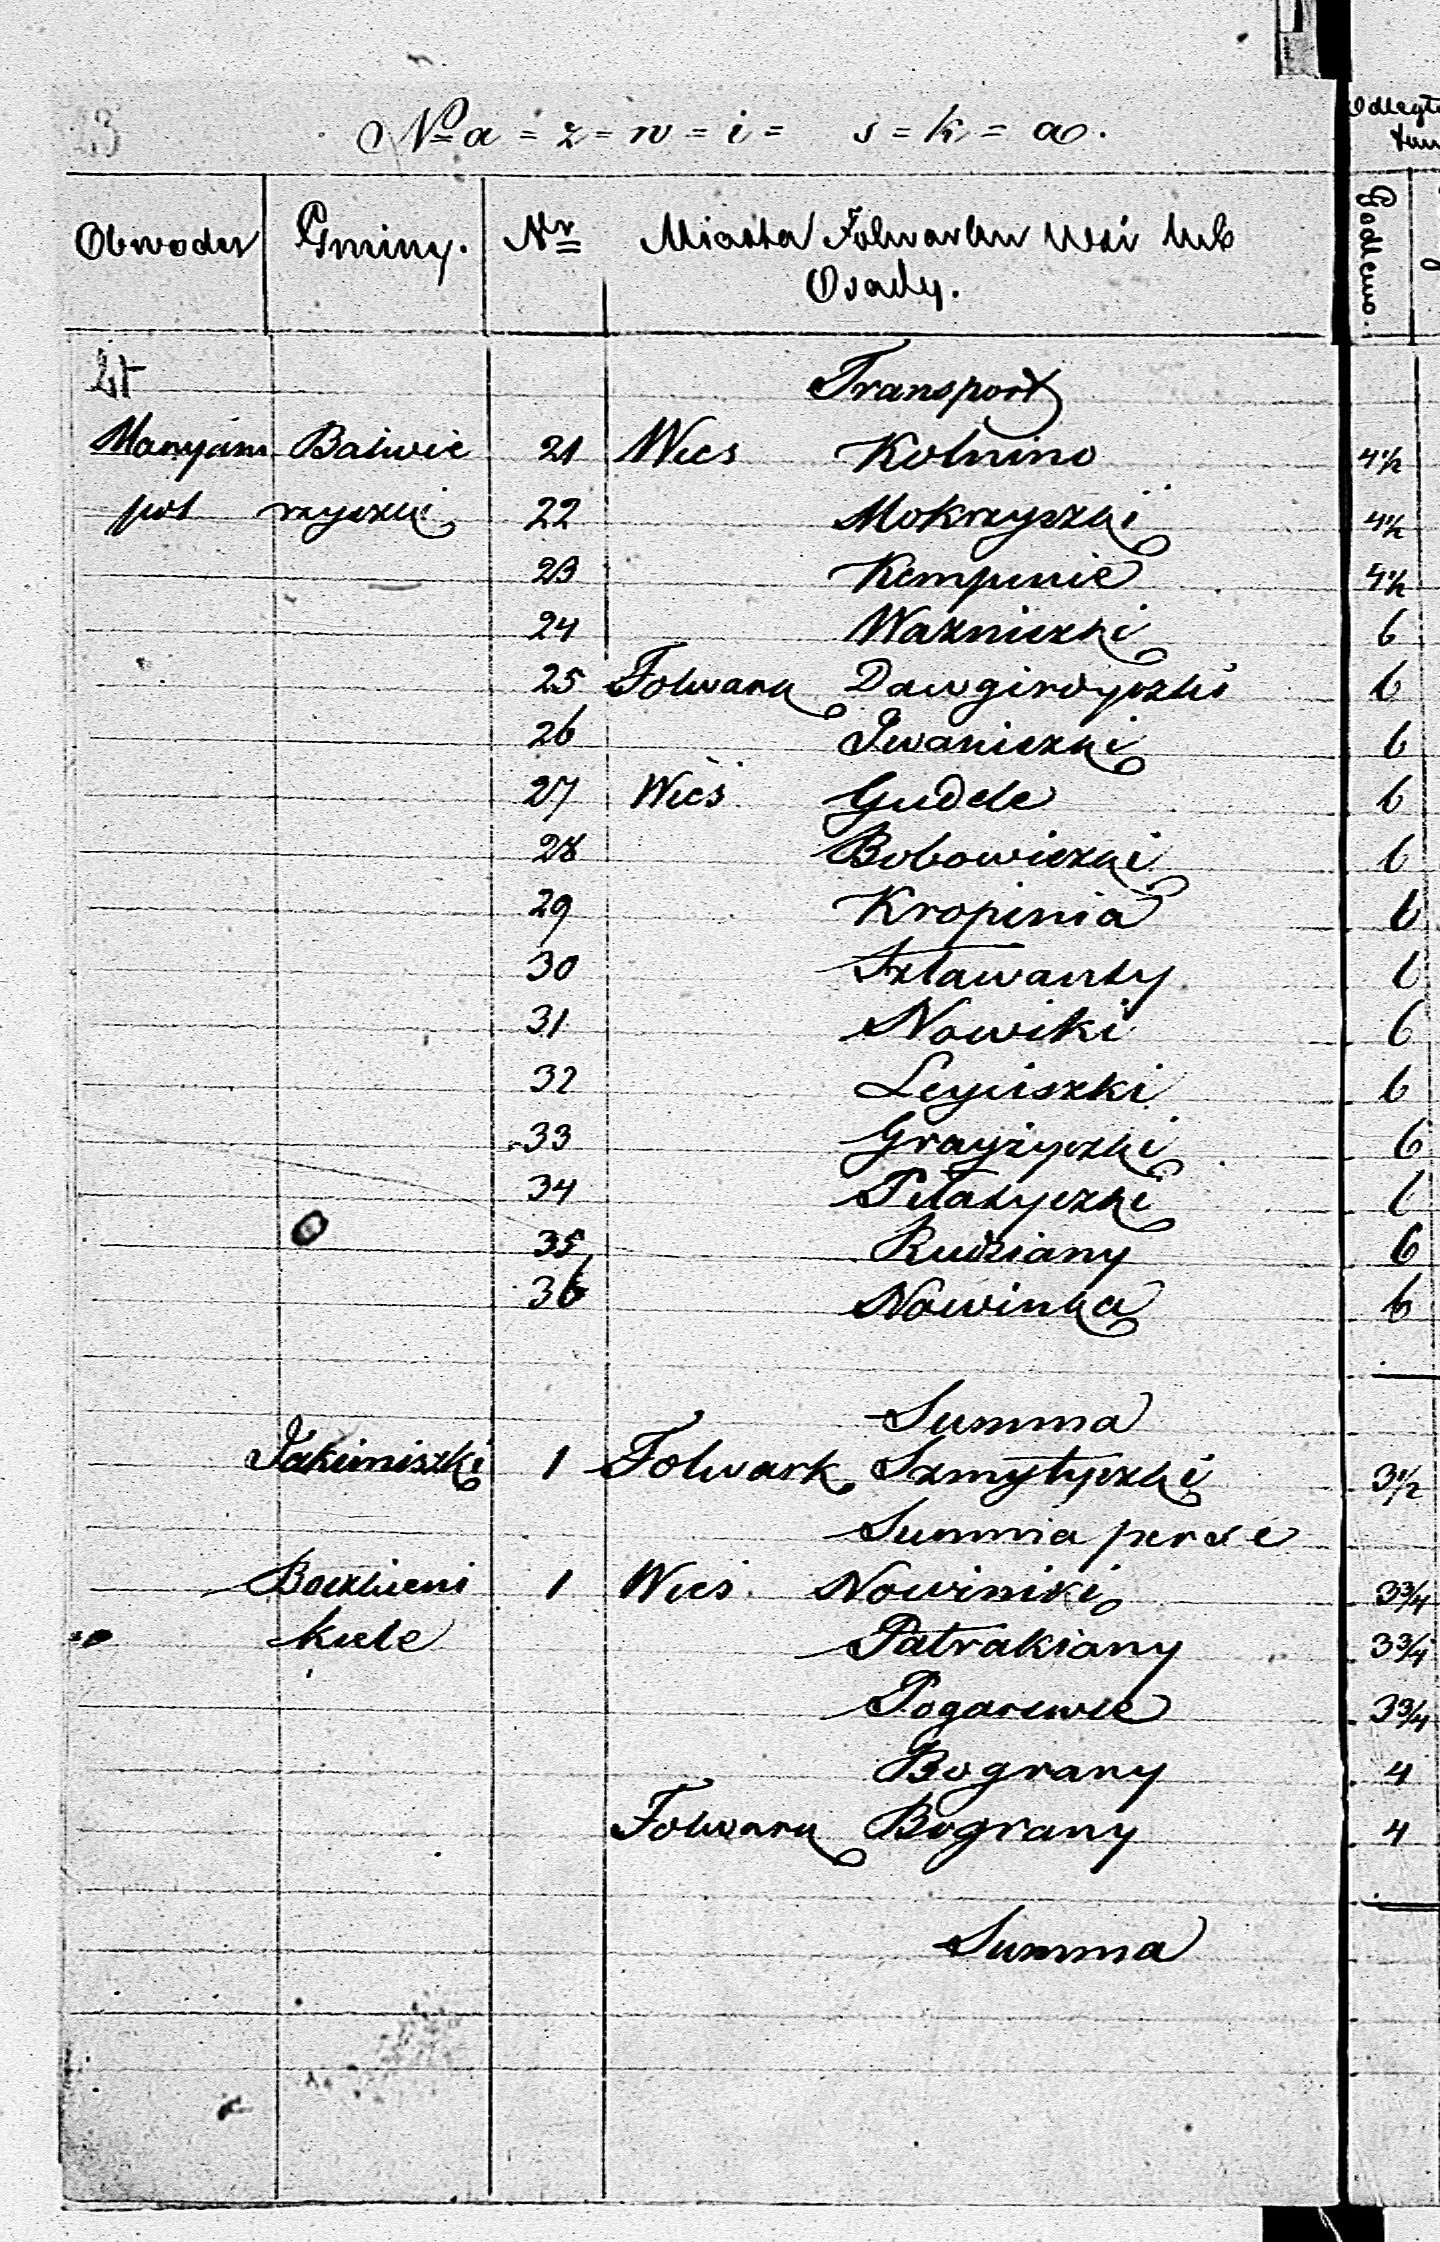 23
N a = z = w = i = s = k = a.
Odległ
Obwodu Gminy. Nr Miasta Folwarku Wsi lub
Osady.
Godlewo.
Transport
Maryam Balwie 21 Wieś Kolnino 4 1/2
pol rzyszki 22 Mokrzyszki 4 1/2
23 Kempinie 4 1/2
24 Wazniszki 6
25 Folwark Dawgirdyszki 6
26 Iwaniszki 6
27 Wieś Gudele 6
28 Bobowiszki 6
29 Kropinia 6
30 Szławanty 6
31 Nowiki 6
32 Leyciszki 6
33 Grayżyszki 6
34 Pilatyszki 6
35 Rudziany 6
36 Nowinka 6
Summa
Jakimiszki 1 Folwark Szmytyszki 3 1/2
Summa per se
1 Wieś Nowiniki 3 3/4
kiele Patrakiany 3 3/4
Pogarewie 3 3/4
Bograny 4
Folwark Bograny 4
Summa